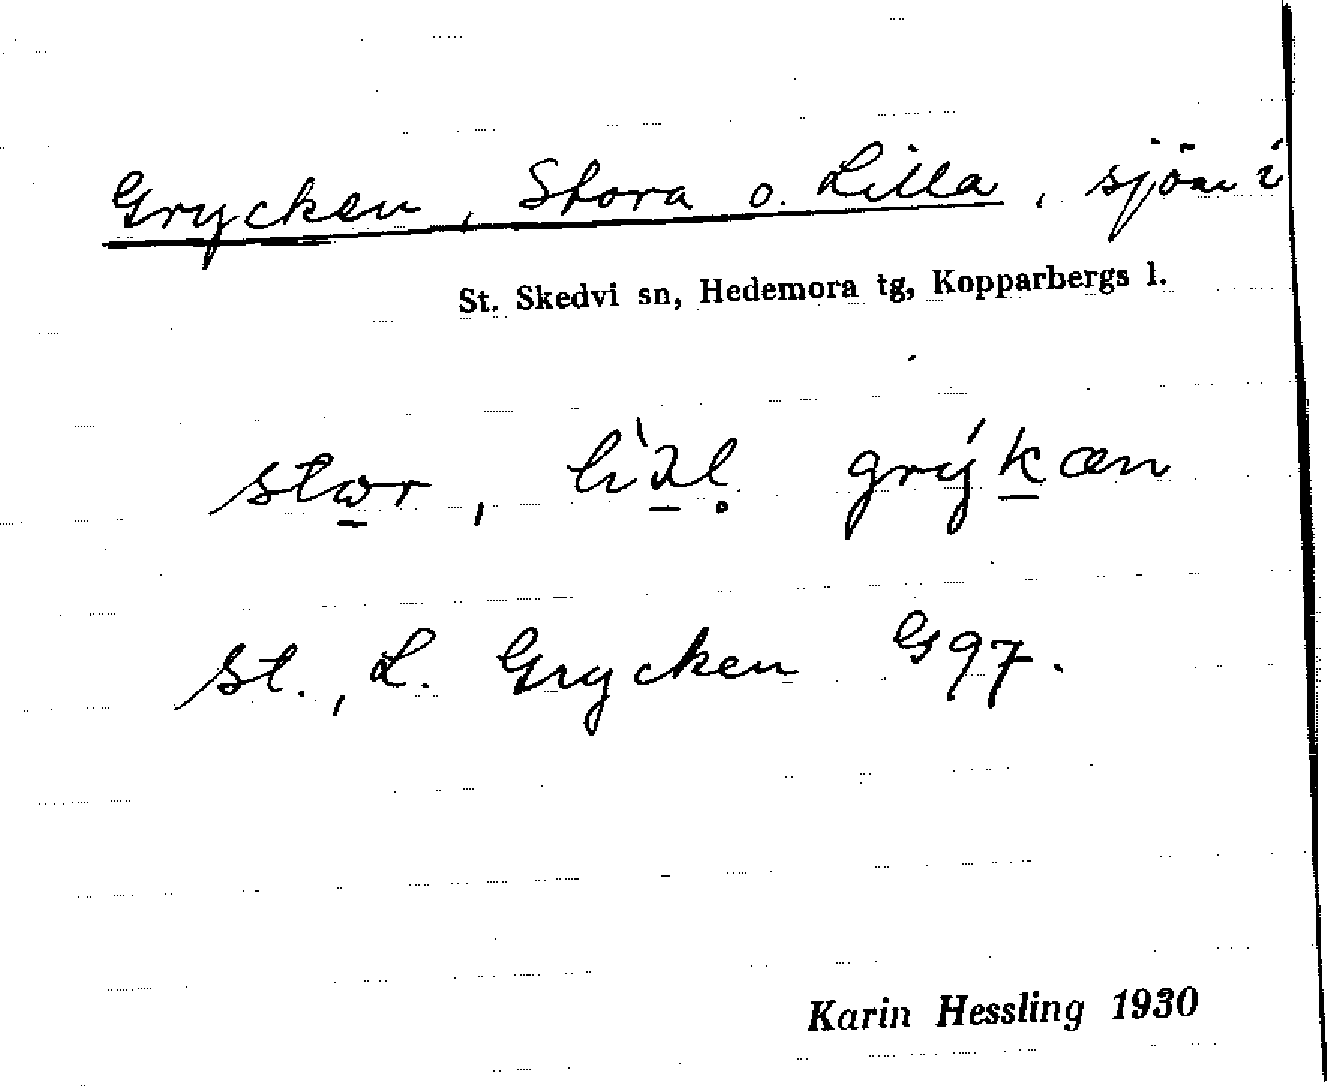 Grycken, Stora o. Lilla, sjöar i
St. Skedvi sn, Hedemora tg, Kopparbergs l.
stωr,
St., L. Grycken G97.
Karin Hessling 1930